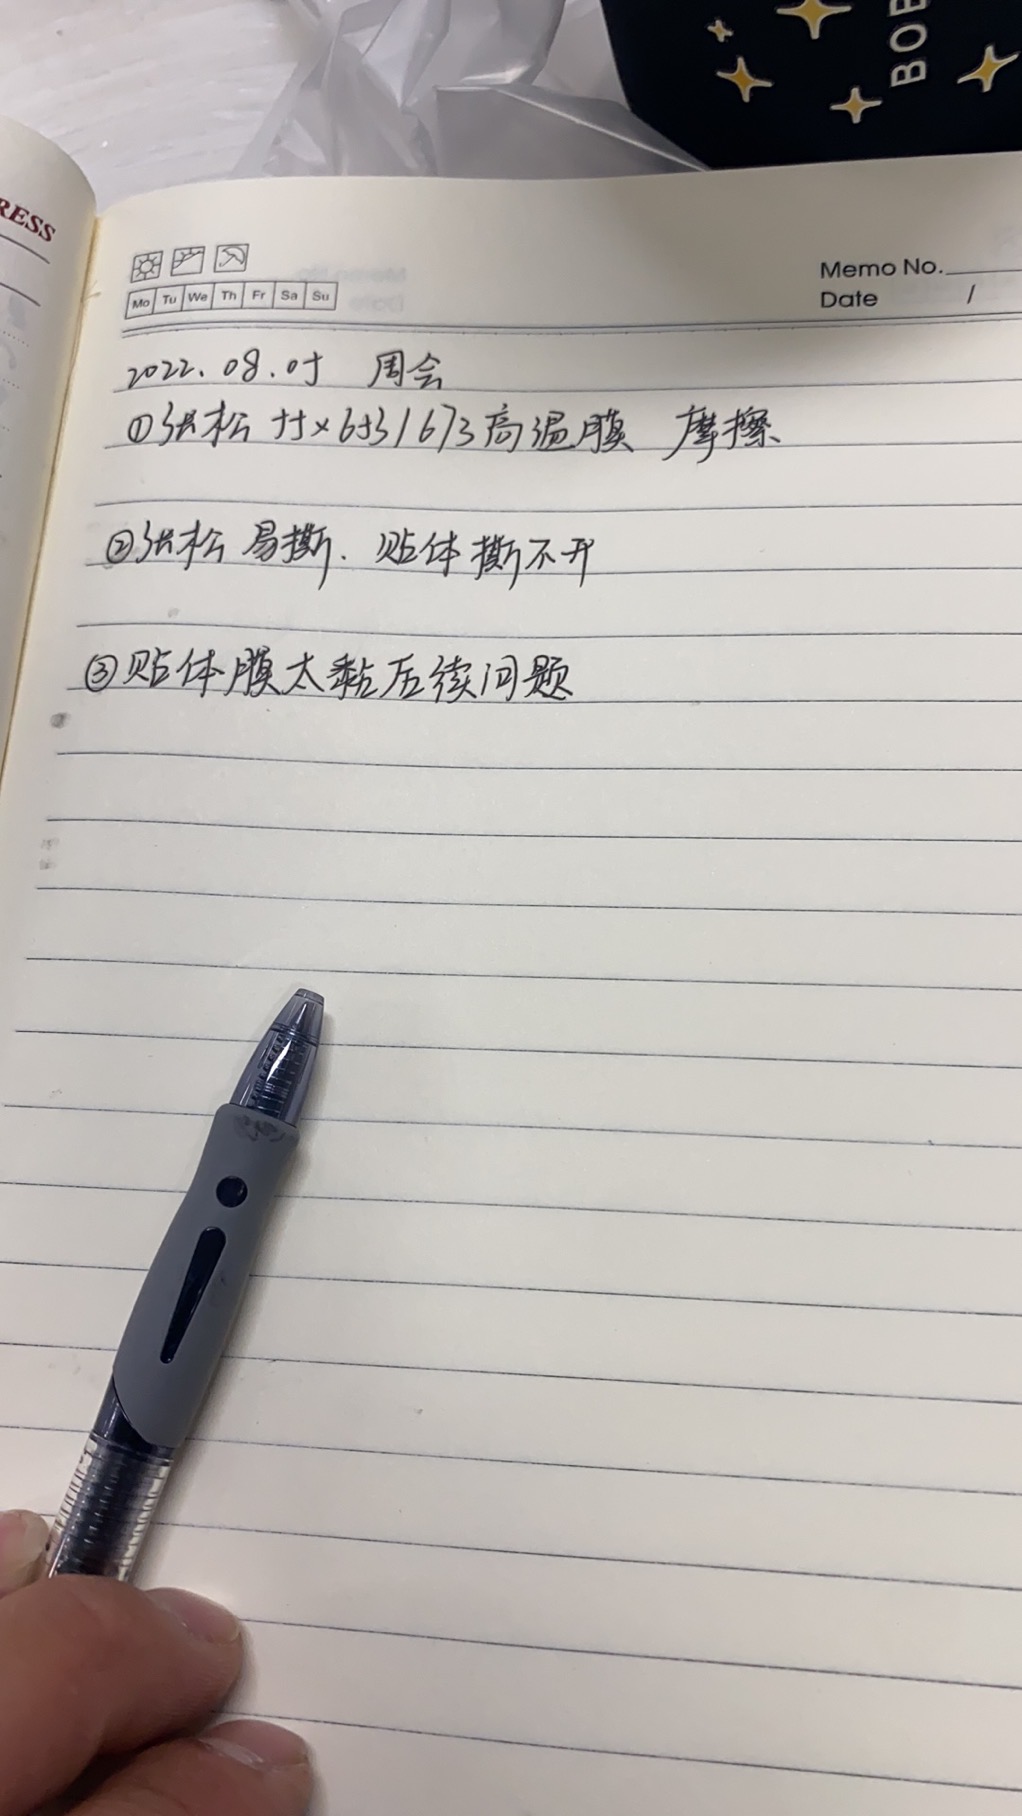 RESS
BOB
Memo No.
Mo Tu We Th Fr Sa Su
Date /
2022.08.05 周会
①洪松 55×653/673高温膜 摩擦
②洪松 易撕. 贴体撕不开
③贴体膜太黏后续问题